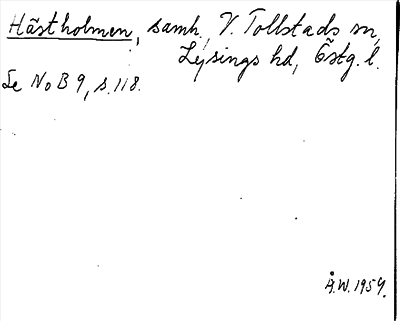 Hästholmen, samh., V. Tollstads sn,
Lysings hd, Östg. l.
Se No B 9, s. 118.
Å.W. 1959.